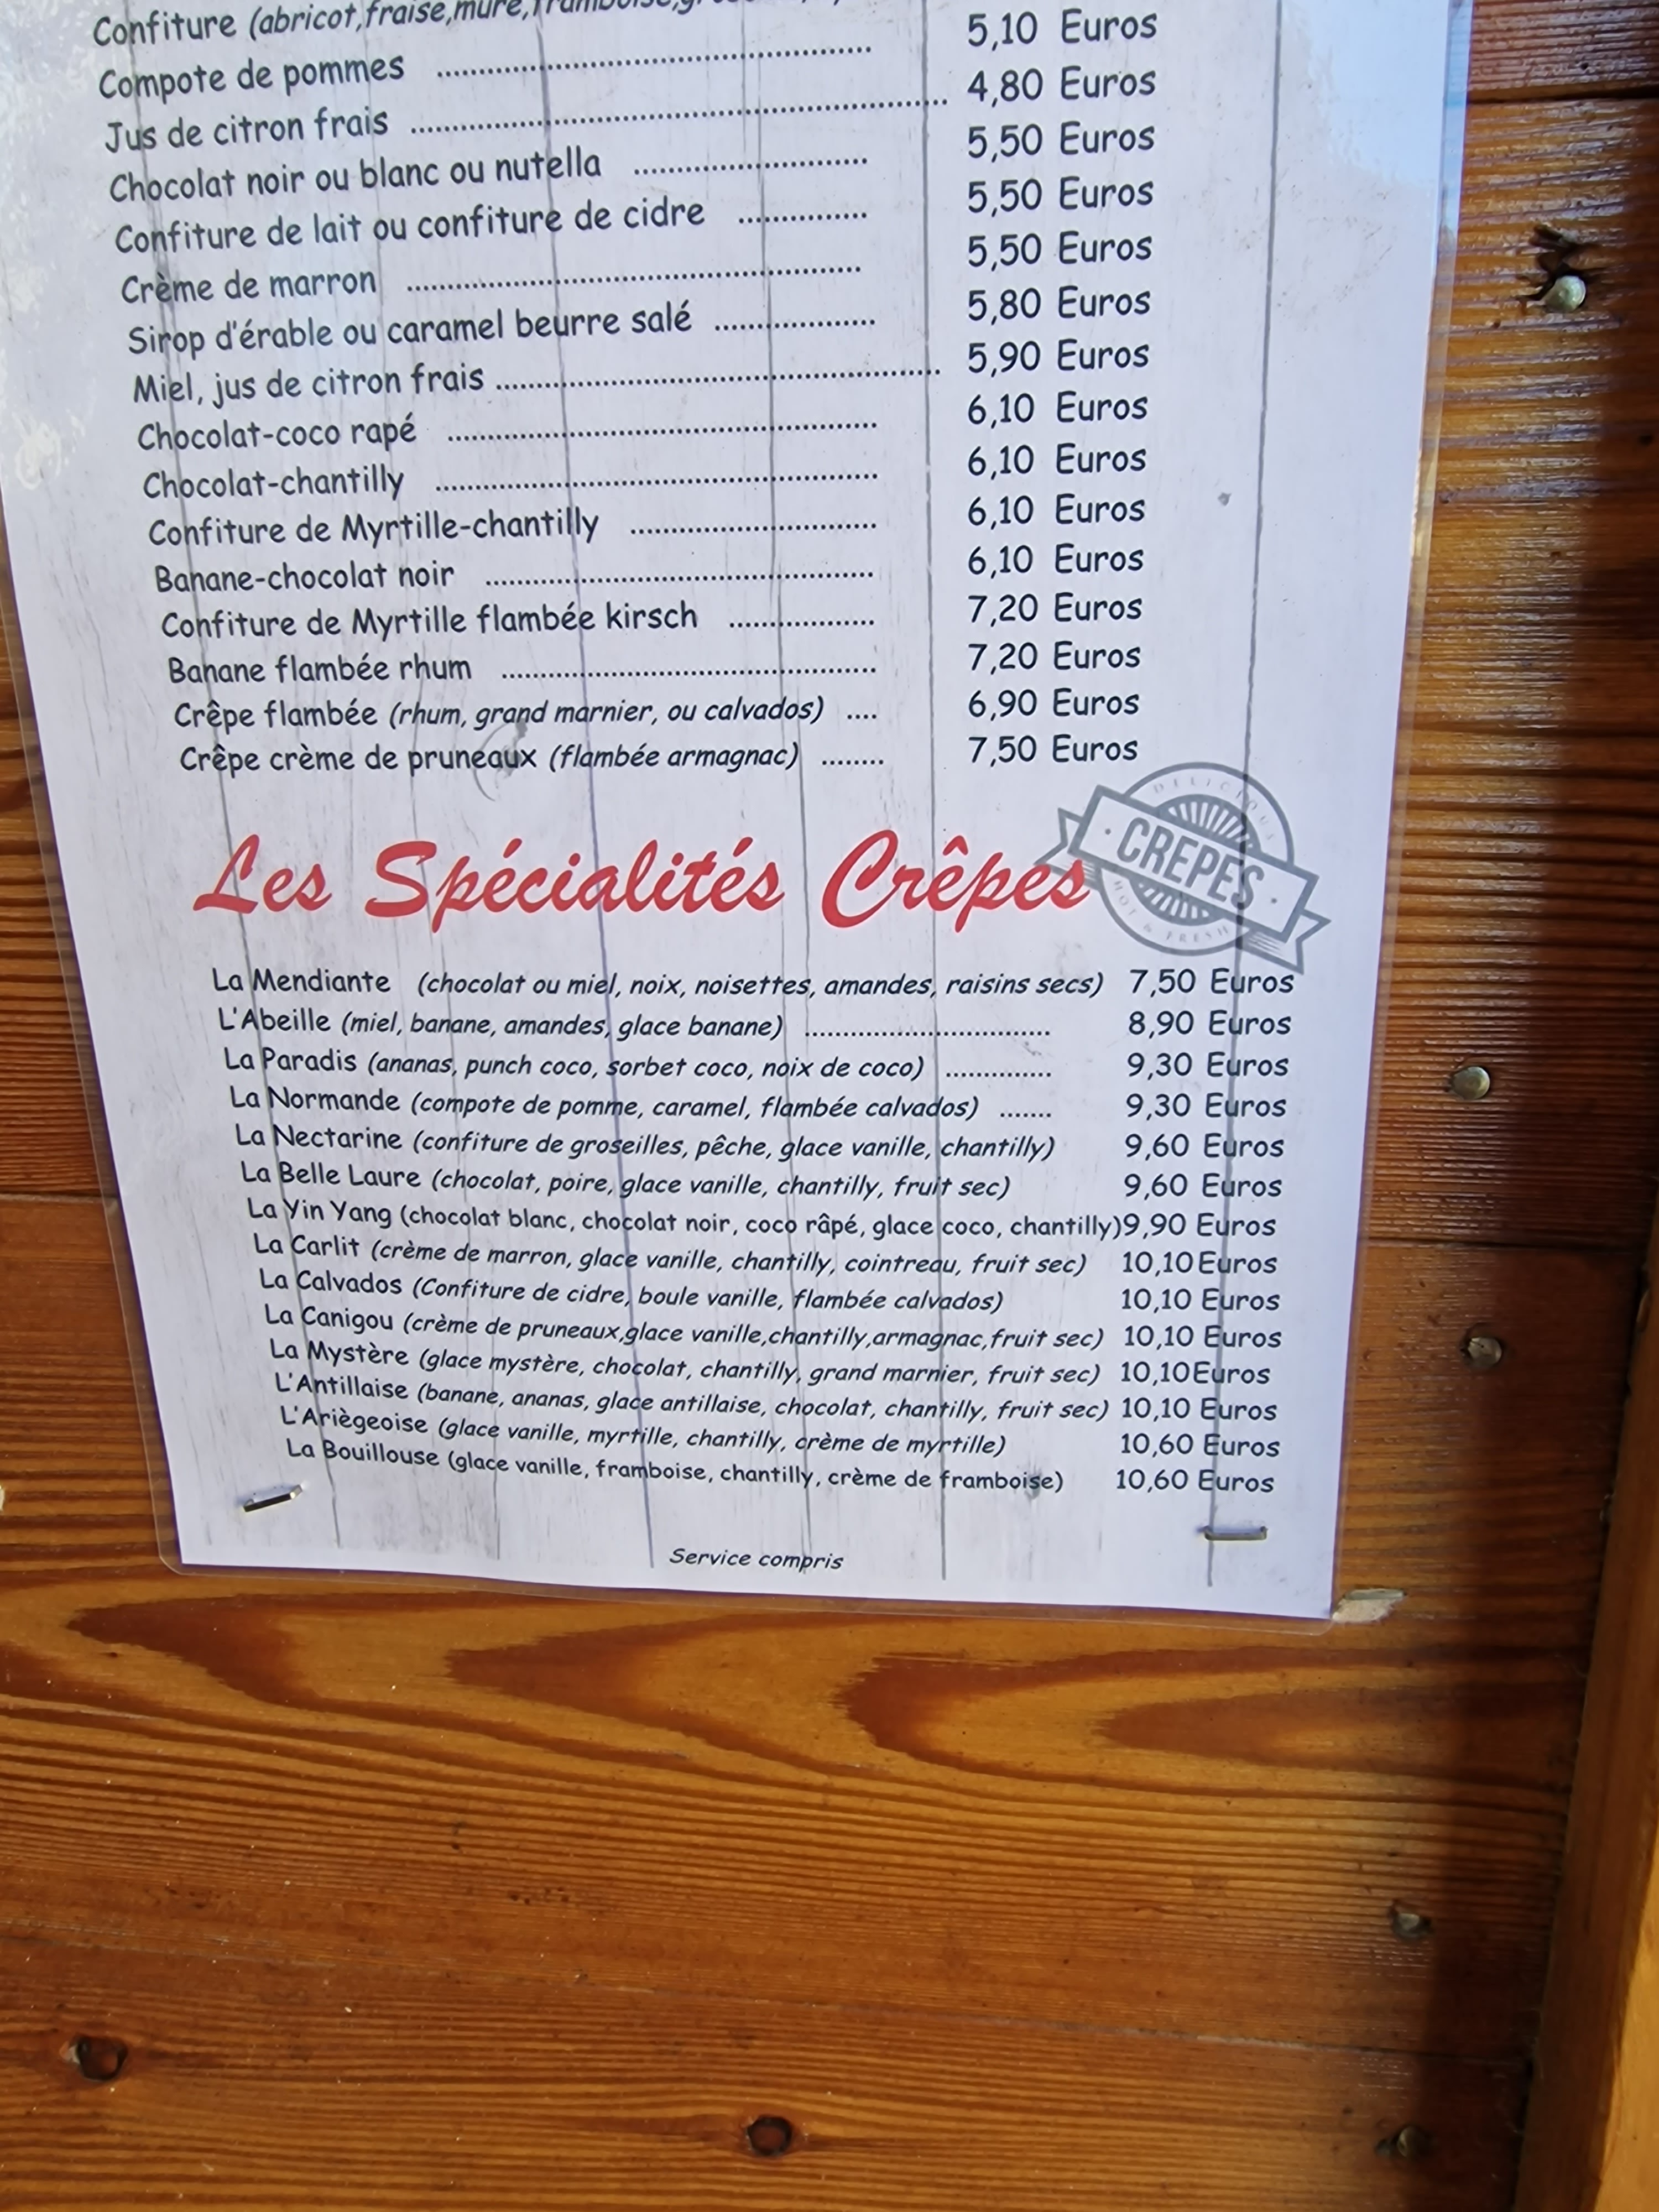 Confiture (abricot,fraise,mure,framboise,
Compote de pommes ........ 5,10 Euros
Jus de citron frais ........ 4,80 Euros
Chocolat noir ou blanc ou nutella ........ 5,50 Euros
Confiture de lait ou confiture de cidre ........ 5,50 Euros
Crème de marron ........ 5,50 Euros
Sirop d'érable ou caramel beurre salé ........ 5,80 Euros
Miel, jus de citron frais ........ 5,90 Euros
Chocolat-coco rapé ........ 6,10 Euros
Chocolat-chantilly ........ 6,10 Euros
Confiture de Myrtille-chantilly ........ 6,10 Euros
Banane-chocolat noir ........ 6,10 Euros
Confiture de Myrtille flambée kirsch ........ 7,20 Euros
Banane flambée rhum ........ 7,20 Euros
Crêpe flambée (rhum, grand marnier, ou calvados) .... 6,90 Euros
Crêpe crème de pruneaux (flambée armagnac) ........ 7,50 Euros
Les Spécialités Crêpes
DELICIOUS
CREPES
HOT & FRESH
La Mendiante (chocolat ou miel, noix, noisettes, amandes, raisins secs) 7,50 Euros
L'Abeille (miel, banane, amandes, glace banane) ........ 8,90 Euros
La Paradis (ananas, punch coco, sorbet coco, noix de coco) ........ 9,30 Euros
La Normande (compote de pomme, caramel, flambée calvados) ....... 9,30 Euros
La Nectarine (confiture de groseilles, pêche, glace vanille, chantilly) 9,60 Euros
La Belle Laure (chocolat, poire, glace vanille, chantilly, fruit sec) 9,60 Euros
La Yin Yang (chocolat blanc, chocolat noir, coco râpé, glace coco, chantilly)9,90 Euros
La Carlit (crème de marron, glace vanille, chantilly, cointreau, fruit sec) 10,10Euros
La Calvados (Confiture de cidre, boule vanille, flambée calvados) 10,10 Euros
La Canigou (crème de pruneaux,glace vanille,chantilly,armagnac,fruit sec) 10,10 Euros
La Mystère (glace mystère, chocolat, chantilly, grand marnier, fruit sec) 10,10Euros
L'Antillaise (banane, ananas, glace antillaise, chocolat, chantilly, fruit sec) 10,10 Euros
L'Ariègeoise (glace vanille, myrtille, chantilly, crème de myrtille) 10,60 Euros
La Bouillouse (glace vanille, framboise, chantilly, crème de framboise) 10,60 Euros
Service compris